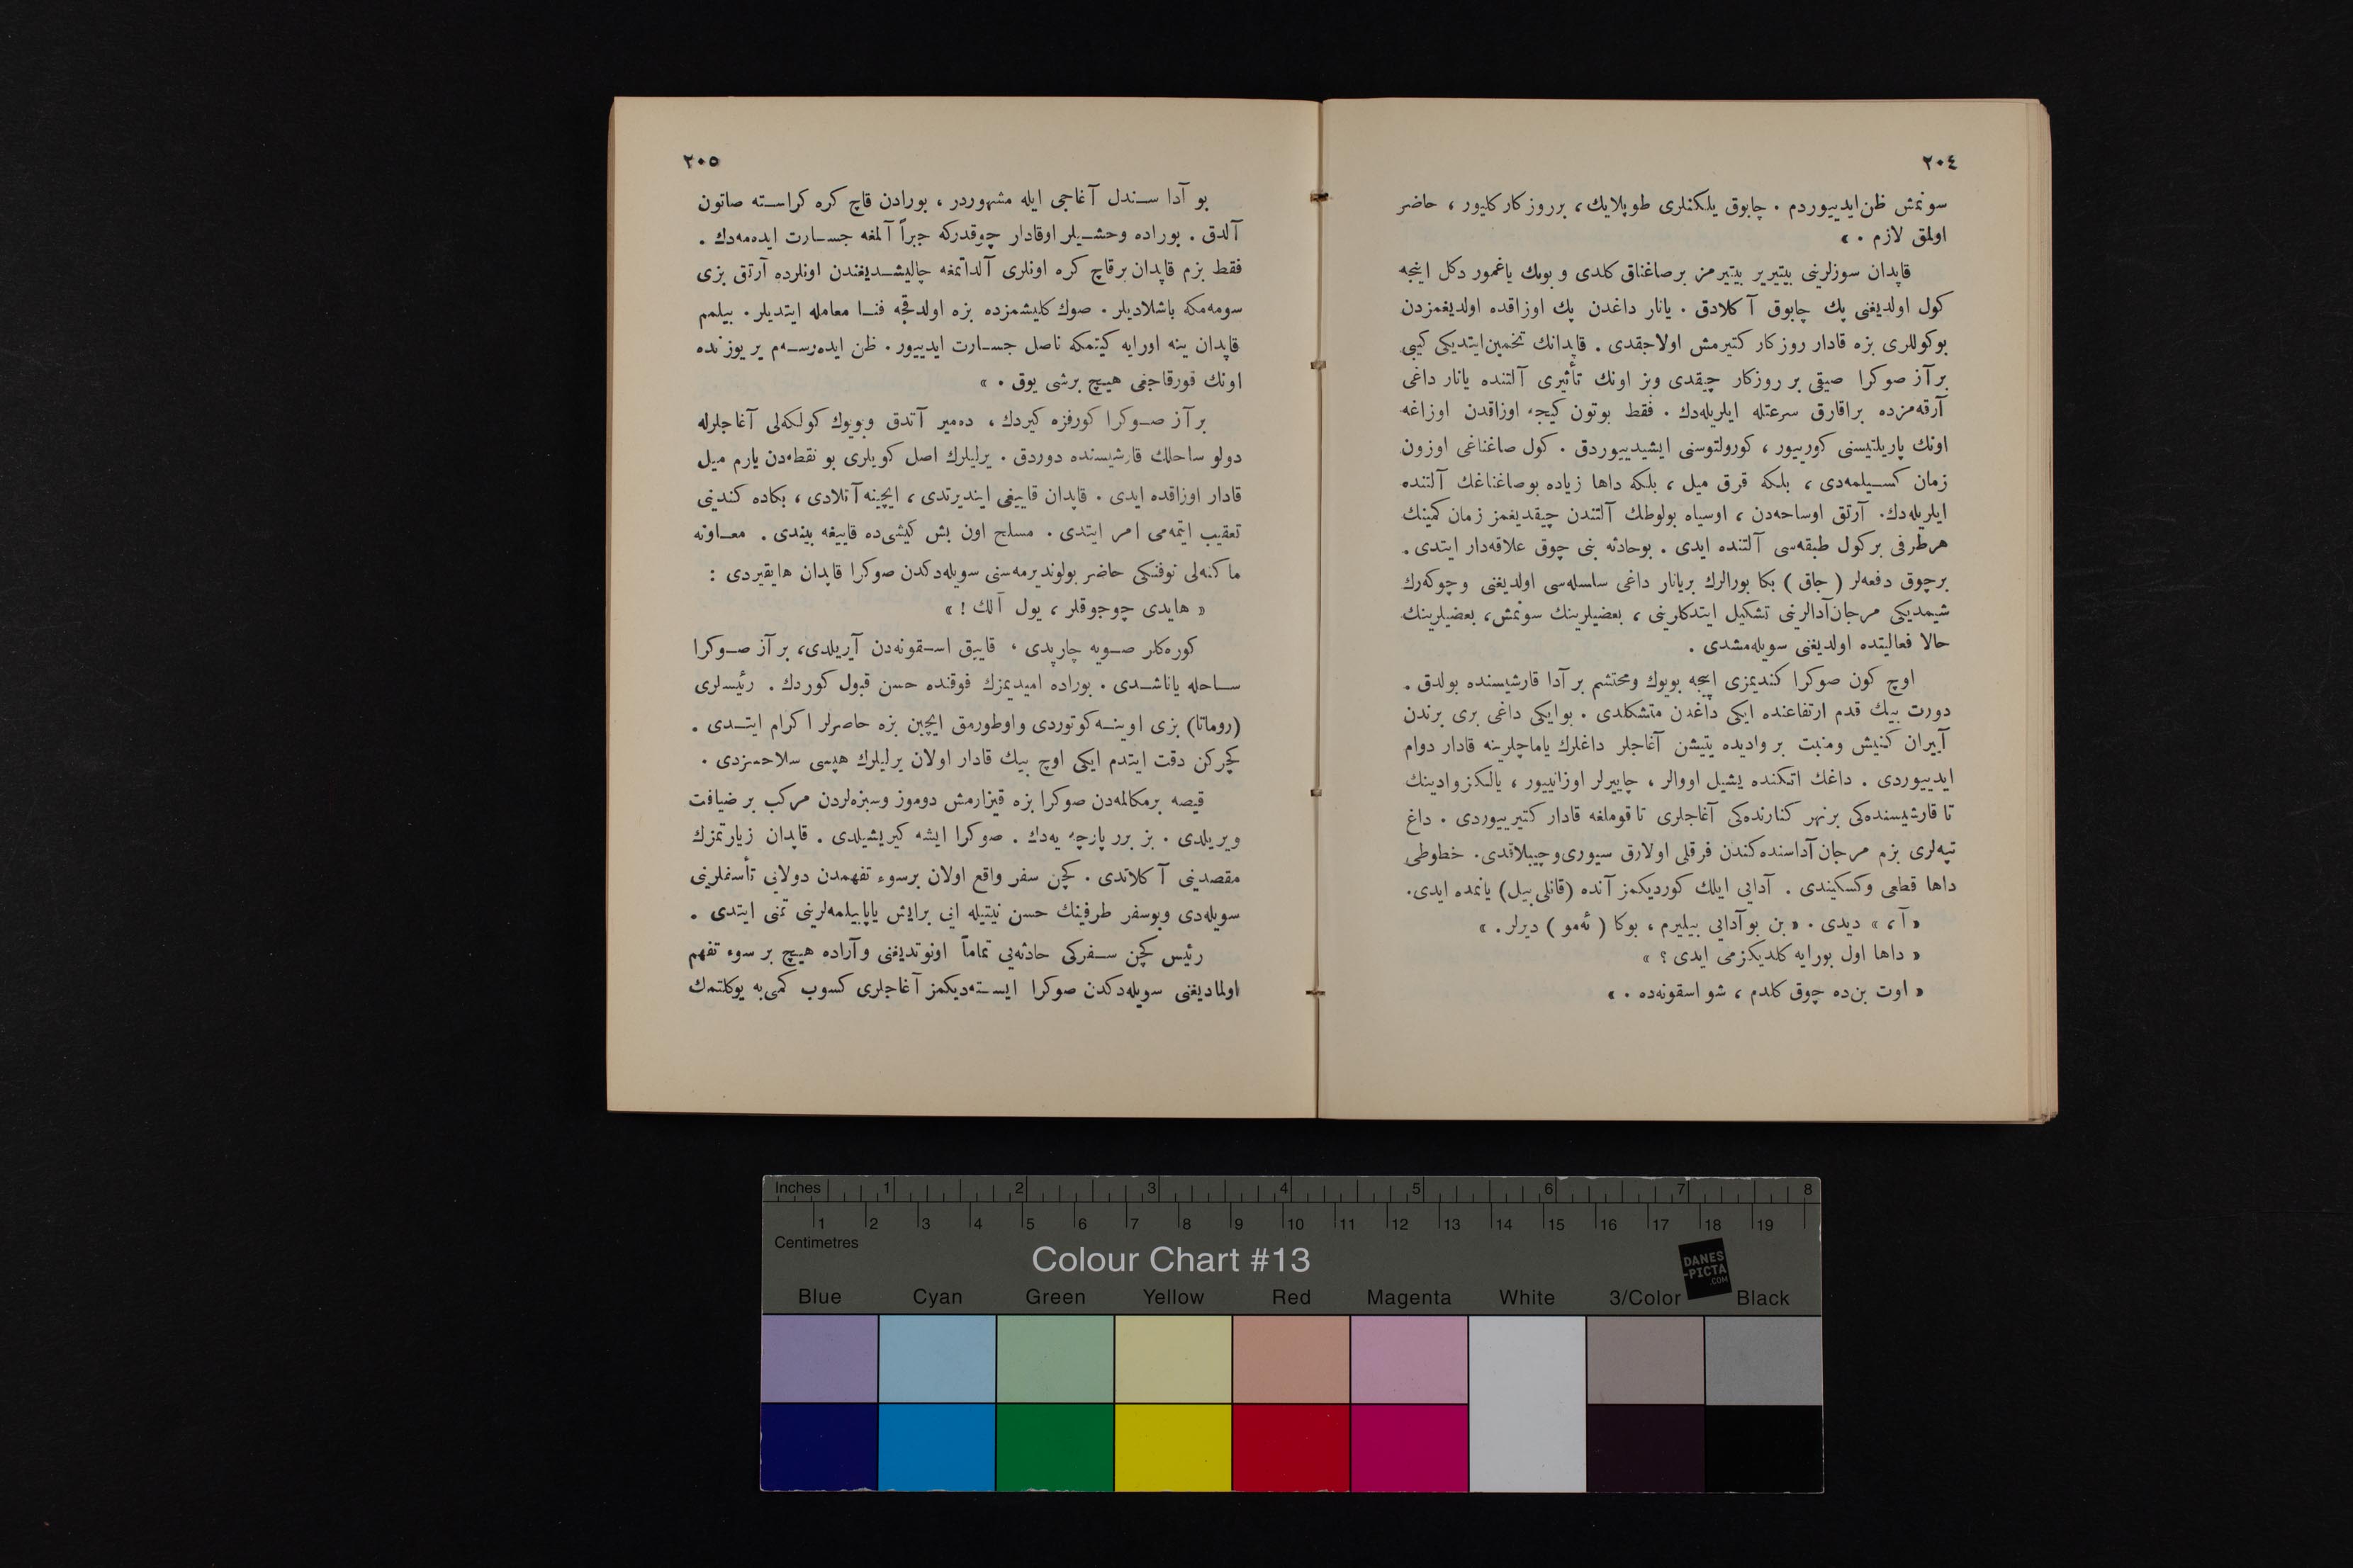 ٢٠٤
سونمش ظن‌ايدييوردم . چابوق يلكنلرى طوپلايك، برروزكار كليور ، حاضر
اولمق لازم . »
قاپدان سوزلرينى بيتيرير بيتيرمز برصاغناق كلدى و بونك ياغمور دكل اينجه
كول اولديغنى پك چابوق آكلادق . يانار داغدن پك اوزاقده اولديغمزدن
بوكوللرى بزه قادار روزكار كتيرمش اولاجقدى . قاپدانك تخمين‌ايتديكى كيبى
برآز صوكرا صيقى بر روزكار چيقدى وبز اونك تأثيرى آلتنده يانار داغى
آرقه‌مزده براقارق سرعتله ايلريله‌دك . فقط بوتون كيجه اوزاقدن اوزاغه
اونك پاريلتيسنى كورييور ، كورولتوسنى ايشيدييوردق . كول صاغناغى اوزون
زمان كسيلمه‌دى ، بلكه قرق ميل ، بلكه داها زياده بوصاغناغك آلتنده
ايلريله‌دك. آرتق اوساحه‌دن ، اوسياه بولوطك آلتندن چيقديغمز زمان كمينك
هرطرفى بركول طبقه‌سى آلتنده ايدى . بوحادثه بنى چوق علاقه‌دار ايتدى.
برچوق دفعه‌لر ( جاق ) بكا بورالرك بريانار داغى سلسله‌سى اولديغنى وچوكه‌رك
شيمديكى مرجان‌آدالرينى تشكيل ايتدكلرينى ، بعضيلرينك سونمش، بعضيلرينك
حالا فعاليتده اولديغنى سويله‌مشدى .
اوچ كون صوكرا كنديمزى اپيجه بويوك ومحتشم بر آدا قارشيسنده بولدق .
دورت بيك قدم ارتفاعنده ايكى داغدن متشكلدى . بوايكى داغى برى برندن
آييران كنيش ومنبت بر واديده يتيشن آغاجلر داغلرك ياماچلرينه قادار دوام
ايدييوردى . داغك اتكنده يشيل اووالر ، چاييرلر اوزانييور ، يالكز وادينك
تا قارشيسنده‌كى برنهر كنارنده‌كى آغاجلرى تا قوملغه قادار كتيرييوردى . داغ
تپه‌لرى بزم مرجان‌آداسنده‌كندن فرقلى اولارق سيورى‌وچيپلاقدى. خطوطى
داها قطعى وكسكيندى . آدايى ايلك كورديكمز آنده (قانلى‌بيل) يانمده ايدى.
« آ، » ديدى . « بن بوآدايى بيليرم ، بوكا ( ئه‌مو ) ديرلر . »
« داها اول بورايه كلديكزمى ايدى ؟ »
« اوت بن‌ده چوق كلدم ، شو اسقونه‌ده . »
٢٠٥
بو آدا سندل آغاجى ايله مشهوردر ، بورادن قاچ كره كراسته صاتون
آلدق . بوراده وحشيلر اوقادار چوقدركه جبراً آلمغه جسارت ايده‌مه‌دك .
فقط بزم قاپدان برقاچ كره اونلرى آلداتمغه چاليشديغندن اونلرده آرتق بزى
سومه‌مكه باشلاديلر . صوك كليشمزده بزه اولدقجه فنا معامله ايتديلر . بيلمم
قاپدان ينه اورايه كيتمكه ناصل جسارت ايدييور . ظن ايده‌رسه‌م ير يوزنده
اونك قورقاجغى هيچ برشى يوق . »
بر آز صوكرا كورفزه كيردك ، ده‌مير آتدق وبويوك كولكه‌لى آغاجلرله
دولو ساحلك قارشيسنده دوردق . يرليلرك اصل كويلرى بو نقطه‌دن يارم ميل
قادار اوزاقده ايدى . قاپدان قاييغى اينديرتدى ، ايچينه آتلادى ، بكاده كندينى
تعقيب ايتمه‌مى امر ايتدى . مسلح اون بش كيشى‌ده قاييغه بيندى . معاونه
ماكنه‌لى توفنكى حاضر بولونديرمه‌سنى سويله‌دكدن صوكرا قاپدان هايقيردى :
« هايدى چوجوقلر ، يول آلك ! »
كوره‌كلر صويه چارپدى ، قاييق اسقونه‌دن آيريلدى، بر آز صوكرا
ساحله ياناشدى . بوراده اميديمزك فوقنده حسن قبول كوردك . رئيسلرى
(روماتا) بزى اوينه كوتوردى واوطورمق ايچين بزه حاصرلر اكرام ايتدى .
كچركن دقت ايتدم ايكى اوچ بيك قادار اولان يرليلرك هپسى سلاحسزدى .
قيصه برمكالمه‌دن صوكرا بزه قيزارمش دوموز وسبزه‌لردن مركب بر ضيافت
ويريلدى . بز برر پارچه يه‌دك . صوكرا ايشه كيريشيلدى . قاپدان زيارتمزك
مقصدينى آكلاتدى . كچن سفر واقع اولان برسوء تفهمدن دولايى تأسفلرينى
سويله‌دى وبوسفر طرفينك حسن نيتيله ايى برايش ياپابيلمه‌لرينى تمنى ايتدى .
رئيس كچن سفركى حادثه‌يى تماماً اونوتديغنى وآراده هيچ بر سوء تفهم
اولماديغنى سويله‌دكدن صوكرا ايسته‌ديكمز آغاجلرى كسوب كمى‌يه يوكلتمك
Inches 1 2 3 4 5 6 7 8
1 2 3 4 5 6 7 8 9 10 11 12 13 14 15 16 17 18 19
Centimetres
Colour Chart #13
DANES
-PICTA
.COM
Blue Cyan Green Yellow Red Magenta White 3/Color Black